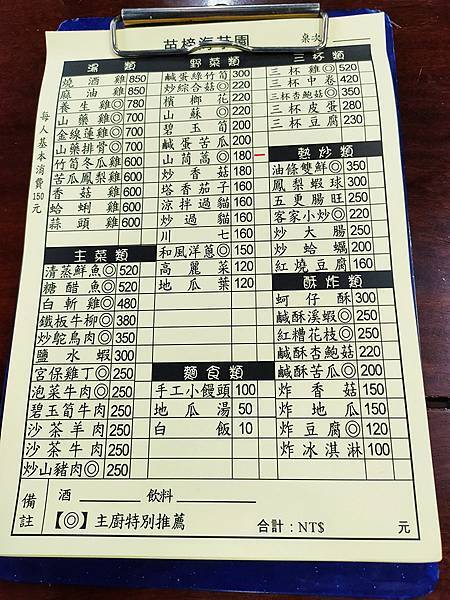 桌次
湯類
燒酒雞 850
麻油雞 850
養生雞◎ 780
山藥雞◎ 700
金線蓮雞◎ 700
山藥排骨◎ 700
竹筍冬瓜雞 600
苦瓜鳳梨雞 600
香菇雞 600
蛤蜊雞 600
蒜頭雞 600
每人基本消費150元
主菜類
清蒸鮮魚◎ 520
糖醋魚◎ 520
白斬雞◎ 480
鐵板牛柳◎ 380
炒鴕鳥肉◎ 350
鹽水蝦 300
宮保雞丁◎ 250
泡菜牛肉◎ 250
碧玉筍牛肉 250
沙茶羊肉 250
沙茶牛肉 250
炒山豬肉◎ 250
野菜類
鹹蛋綠竹筍 300
炒綜合菇◎ 220
檳榔花 220
山蘇◎ 200
碧玉筍 200
鹹蛋苦瓜 200
山茼萵◎ 180
炒香菇 180
塔香茄子 160
涼拌過貓 160
炒過貓 160
川七 160
和風洋蔥◎ 150
高麗菜 120
地瓜葉 120
麵食類
手工小饅頭 100
地瓜湯 50
白飯 10
三杯類
三杯雞◎ 520
三杯中卷 420
三杯杏鮑菇◎ 350
三杯皮蛋 280
三杯豆腐 230
熱炒類
油條雙鮮◎ 350
鳳梨蝦球 300
五更腸旺 250
客家小炒◎ 220
炒大腸 250
炒蛤蠣 200
紅燒豆腐 160
酥炸類
蚵仔酥 300
鹹酥溪蝦◎ 250
紅糟花枝◎ 250
鹹酥杏鮑菇 220
鹹酥苦瓜◎ 200
炸香菇 150
炸地瓜 150
炸豆腐◎ 120
炸冰淇淋 100
備註
酒 飲料
【◎】主廚特別推薦
合計：NT$ 元